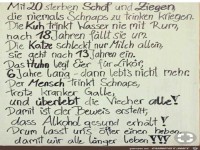 Mit 20 sterben Schaf und Ziegen,
die niemals Schnaps zu trinken kriegen.
Die Kuh trinkt Wasser nie mit Rum,
nach 18 Jahren fällt sie um.
Die Katze schleckt nur Milch allein,
sie acht nach 13 Jahren ein.
Das Huhn legt Eier für Likör,
6 Jahre lang - dann lebt's nicht mehr.
Der Mensch trinkt Schnaps,
trotz kranker Galle,
und überlebt die Viecher alle!
Damit ist der Beweis erstellt,
dass Alkohol gesund erhält!
Drum lasst uns öfter einen heben,
damit wir alle länger leben!!!